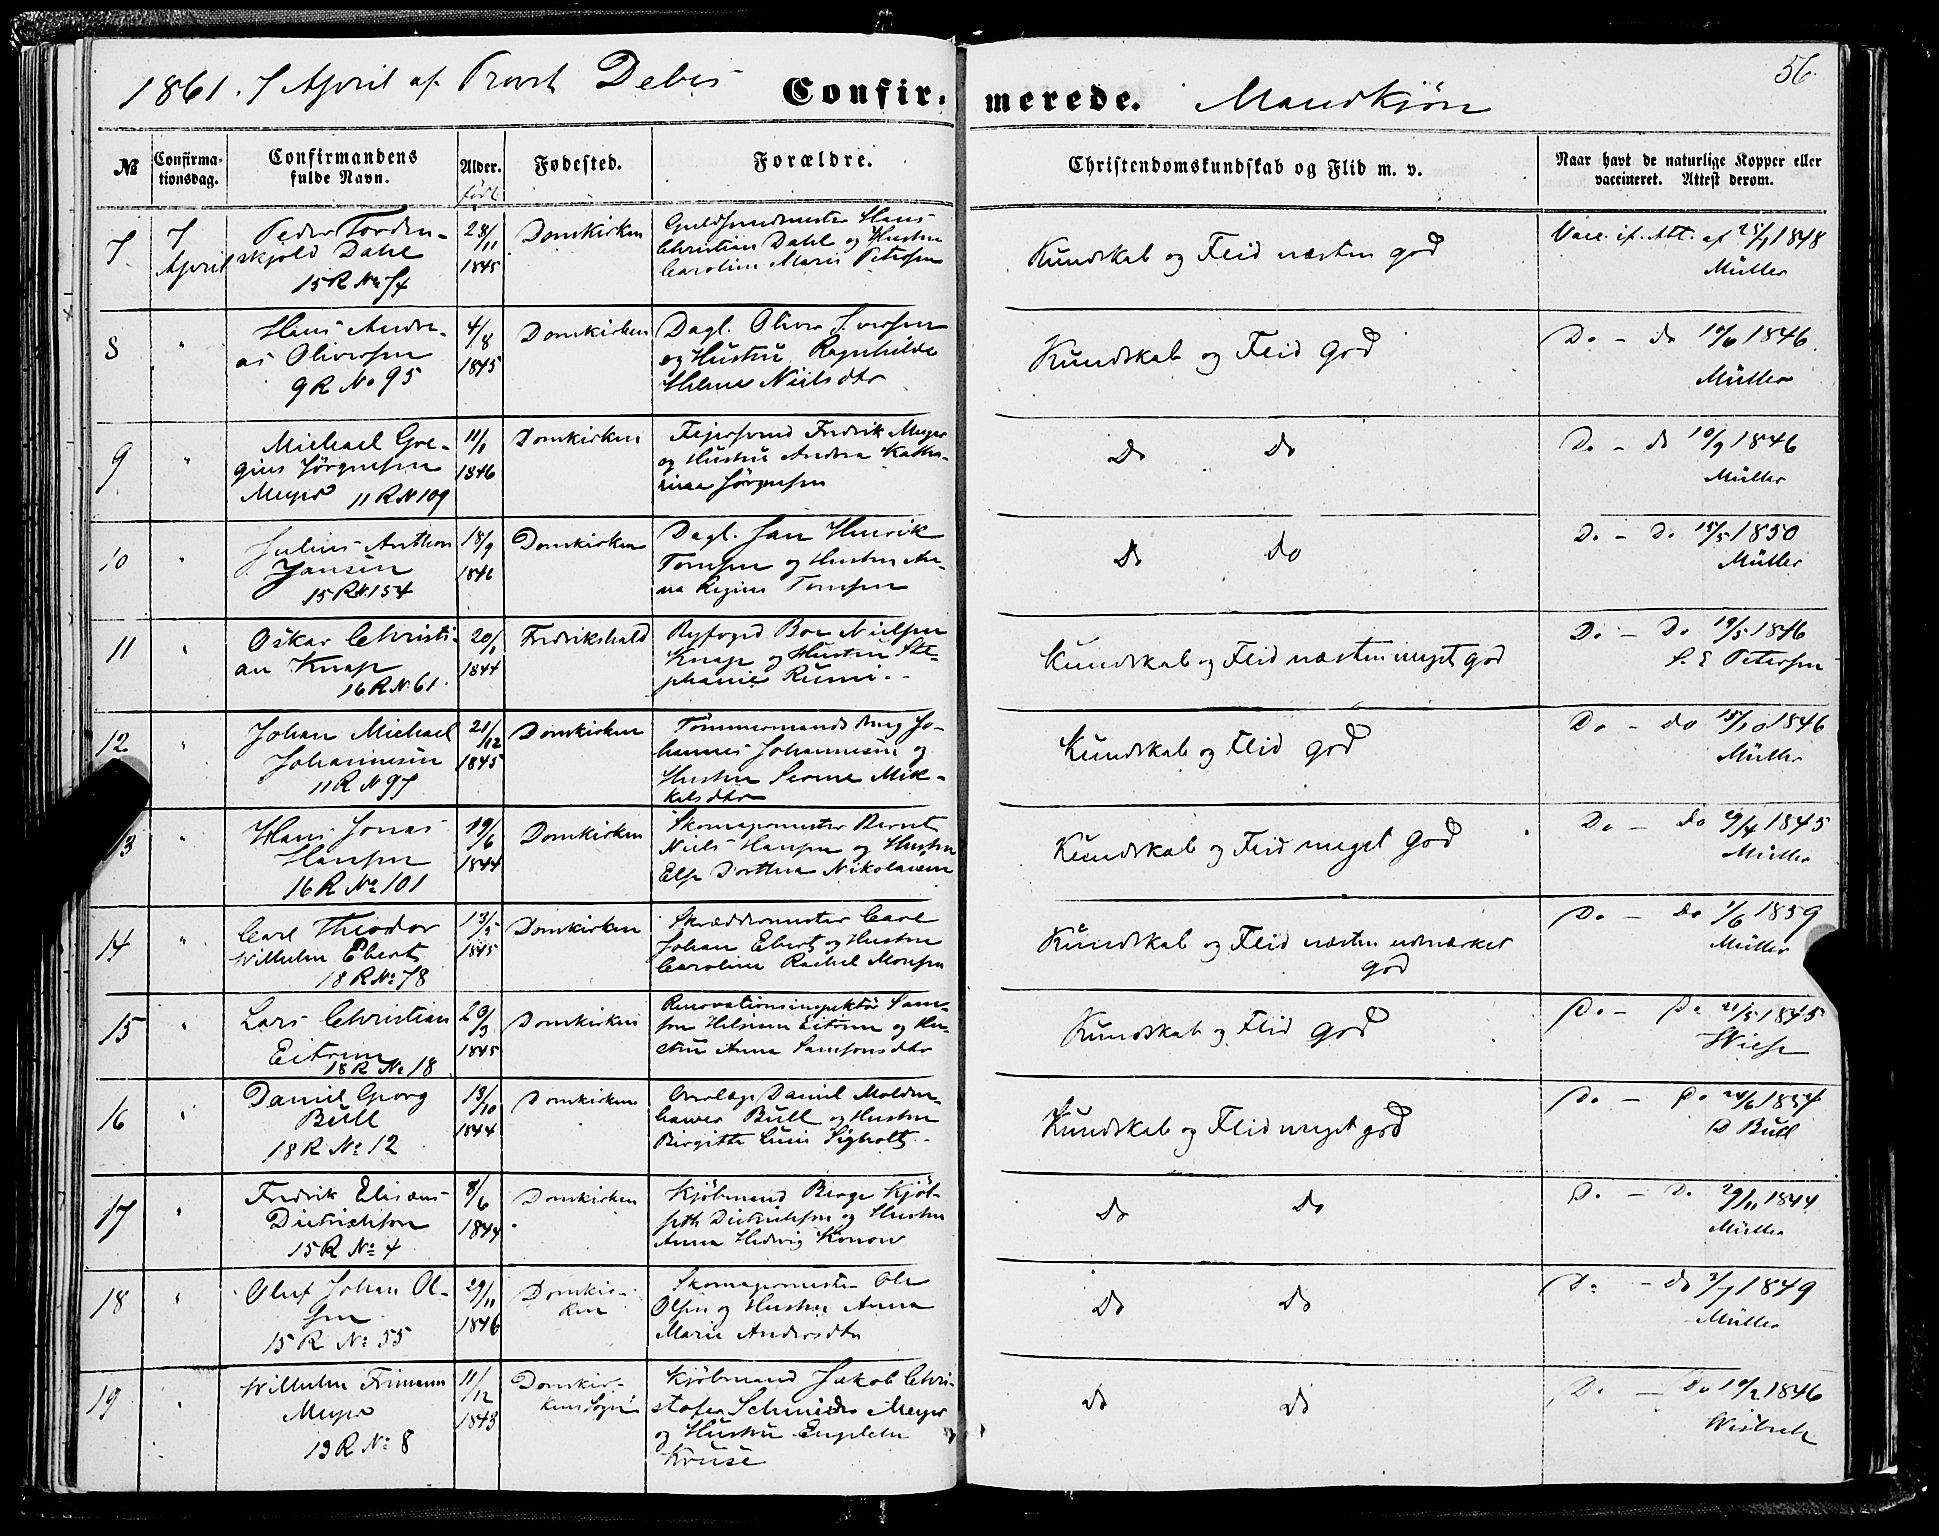 1861. 7 April af Provst Debes
Confir-
merede. Mandkjøn
56.
№
Confirma-
tionsdag.
Confirmandens
fulde Navn.
Alder.
født
Fødested.
Forældre.
Christendomskundskab og Flid m. v.
Naar havt de naturlige Kopper eller
vaccineret. Attest derom.
7
7
April
Peder Torden-
skjold Dahl
15 R № 74
28/11
1845
Domkirken
Guldsmedmester Hans
Christian Dahl og Hustru
Caroline Marie Petersen
Kundskab og Flid næsten god
Vacc. if. Att. af 25/7 1848
Müller
8
"
Hans Andre-
as Oliversen
9 R № 95
4/8
1845
Domkirken
Dagl. Oliver Iversen
og Hustru Ragnhilde
Helene Nilsdtr
Kundskab og Flid god
Do - do 10/6 1846.
Müller
9
"
Michael Gre-
gius Jørgensen
Meyer 11 R № 109
11/1
1846
Domkirken
Fejersvend Fredrik Meyer
og Hustru Andrea Katha-
rina Jørgensen
Do do
Do - do 10/9 1846
Müller
10
"
Julius Anthon
Jansen
15 R № 154
18/9
1846
Domkirken
Dagl. Jan Henrik
Tomsen og Hustru An-
na Regine Tomsen
Do do
Do - Do 15/5 1850
Müller
11
"
Oskar Christi-
an Knap
16 R № 61.
20/1
1844
Fredrikshald
Byfoged Boe Nielsen
Knap og Hustru Ste-
phanie
Kundskab og Flid næsten meget god
Do - Do 19/5 1846
S. E Petersen
12
"
Johan Michael
Johannesen
11 R № 97
21/12
1845
Domkirken
Tømmermands Jo-
hannes Johannesen og
Hustru Serine Mik-
kelsdtr
Kundskab og Flid god
Do - do 15/10 1846
Müller
13
"
Hans Jonas
Hansen
16 R № 101
19/6
1844
Domkirken
Skomagermester Bernt
Niels Hansen og Hustru
Else Dorthea Nikolaisen
Kundskab og Flid meget god
Do - Do 9/4 1845
Müller
14
"
Carl Theodor
Wilhelm Ebert
18 R № 78
13/5
1845
Domkirken
Skræddermester Carl
Johan Ebert og Hustru
Caroline Rachel Monsen
Kundskab og Flid næsten udmærket
god
Do - Do 1/6 1859
Müller
15
"
Lars Christian
Eitrem
18 R № 18
29/3
1845
Domkirken
Renovationsinspektør Sam-
son Eitrem og Hu-
stru Anna Samsonsdtr
Kundskab og Flid god
Do - Do 21/5 1845
Wiese
16
"
Daniel Georg
Bull
18 R № 12
13/10
1844
Domkirken
Overlæge Daniel Molden-
hawer Bull og Hustru
Birgitte Lucie Sigholt
Kundskab og Flid meget god
Do - Do 24/6 1857
D Bull
17
"
Fredrik Elisæus
Dietrichson
15 R № 4
8/6
1844
Domkirken
Kjøbmand Berge Kjøb-
seth Dietrichson og Hustru
Anna Hedvig Konow
do do
Do - Do 29/11 1844
Müller
18
"
Oluf Johan Ol-
sen
15 R № 55
29/11
1846
Domkir-
ken
Skomagermester Ole
Olsen og Hustru Anna
Marie Andersdtr
do do
Do - do 3/7 1849
Müller
19
"
Wilhelm Frimann
Meyer
13 R № 8
11/12
1843
Domkir-
kens Sogn
Kjøbmand Jakob Chri-
stofer Schmieder Meyer
og Hustru Engelche
Kruse
do do
Do - Do 10/2 1846